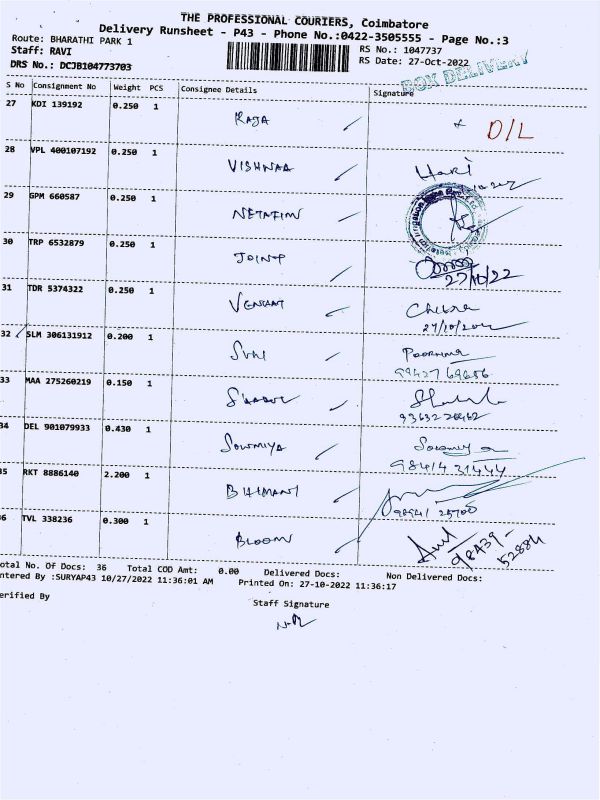 THE PROFESSIONAL COURIERS, Coimbatore
Delivery Runsheet - P43 - Phone No.:0422-3505555 - Page No.:3
Route: BHARATHI PARK 1
RS No.: 1047737
Staff: RAVI
RS Date: 27-Oct-2022
DRS No.: DCJB104773703
BOX DELIVERY
S No Consignment No Weight PCS Consignee Details Signature
27 KDI 139192 0.250 1 RAJA D/L
28 VPL 400107192 0.250 1 VISHNAA Hari
29 GPM 660587 0.250 1 NETAFIM
30 TRP 6532879 0.250 1 JOINT 27/10/22
31 TDR 5374322 0.250 1 VENKAT Chitra
27/10/202
32 SLM 306131912 0.200 1 SVNI Poornima
99427 69686
33 MAA 275260219 0.150 1
93632 20462
34 DEL 901079933 0.430 1 SOWMIYA Sowmiya
98414 31444
35 RKT 8886140 2.200 1 BHIMANI
98941 25700
36 TVL 338236 0.300 1 BLOOM
98439-
52884
otal No. Of Docs: 36 Total COD Amt: 0.00 Delivered Docs: Non Delivered Docs:
ntered By :SURYAP43 10/27/2022 11:36:01 AM Printed On: 27-10-2022 11:36:17
erified By
Staff Signature